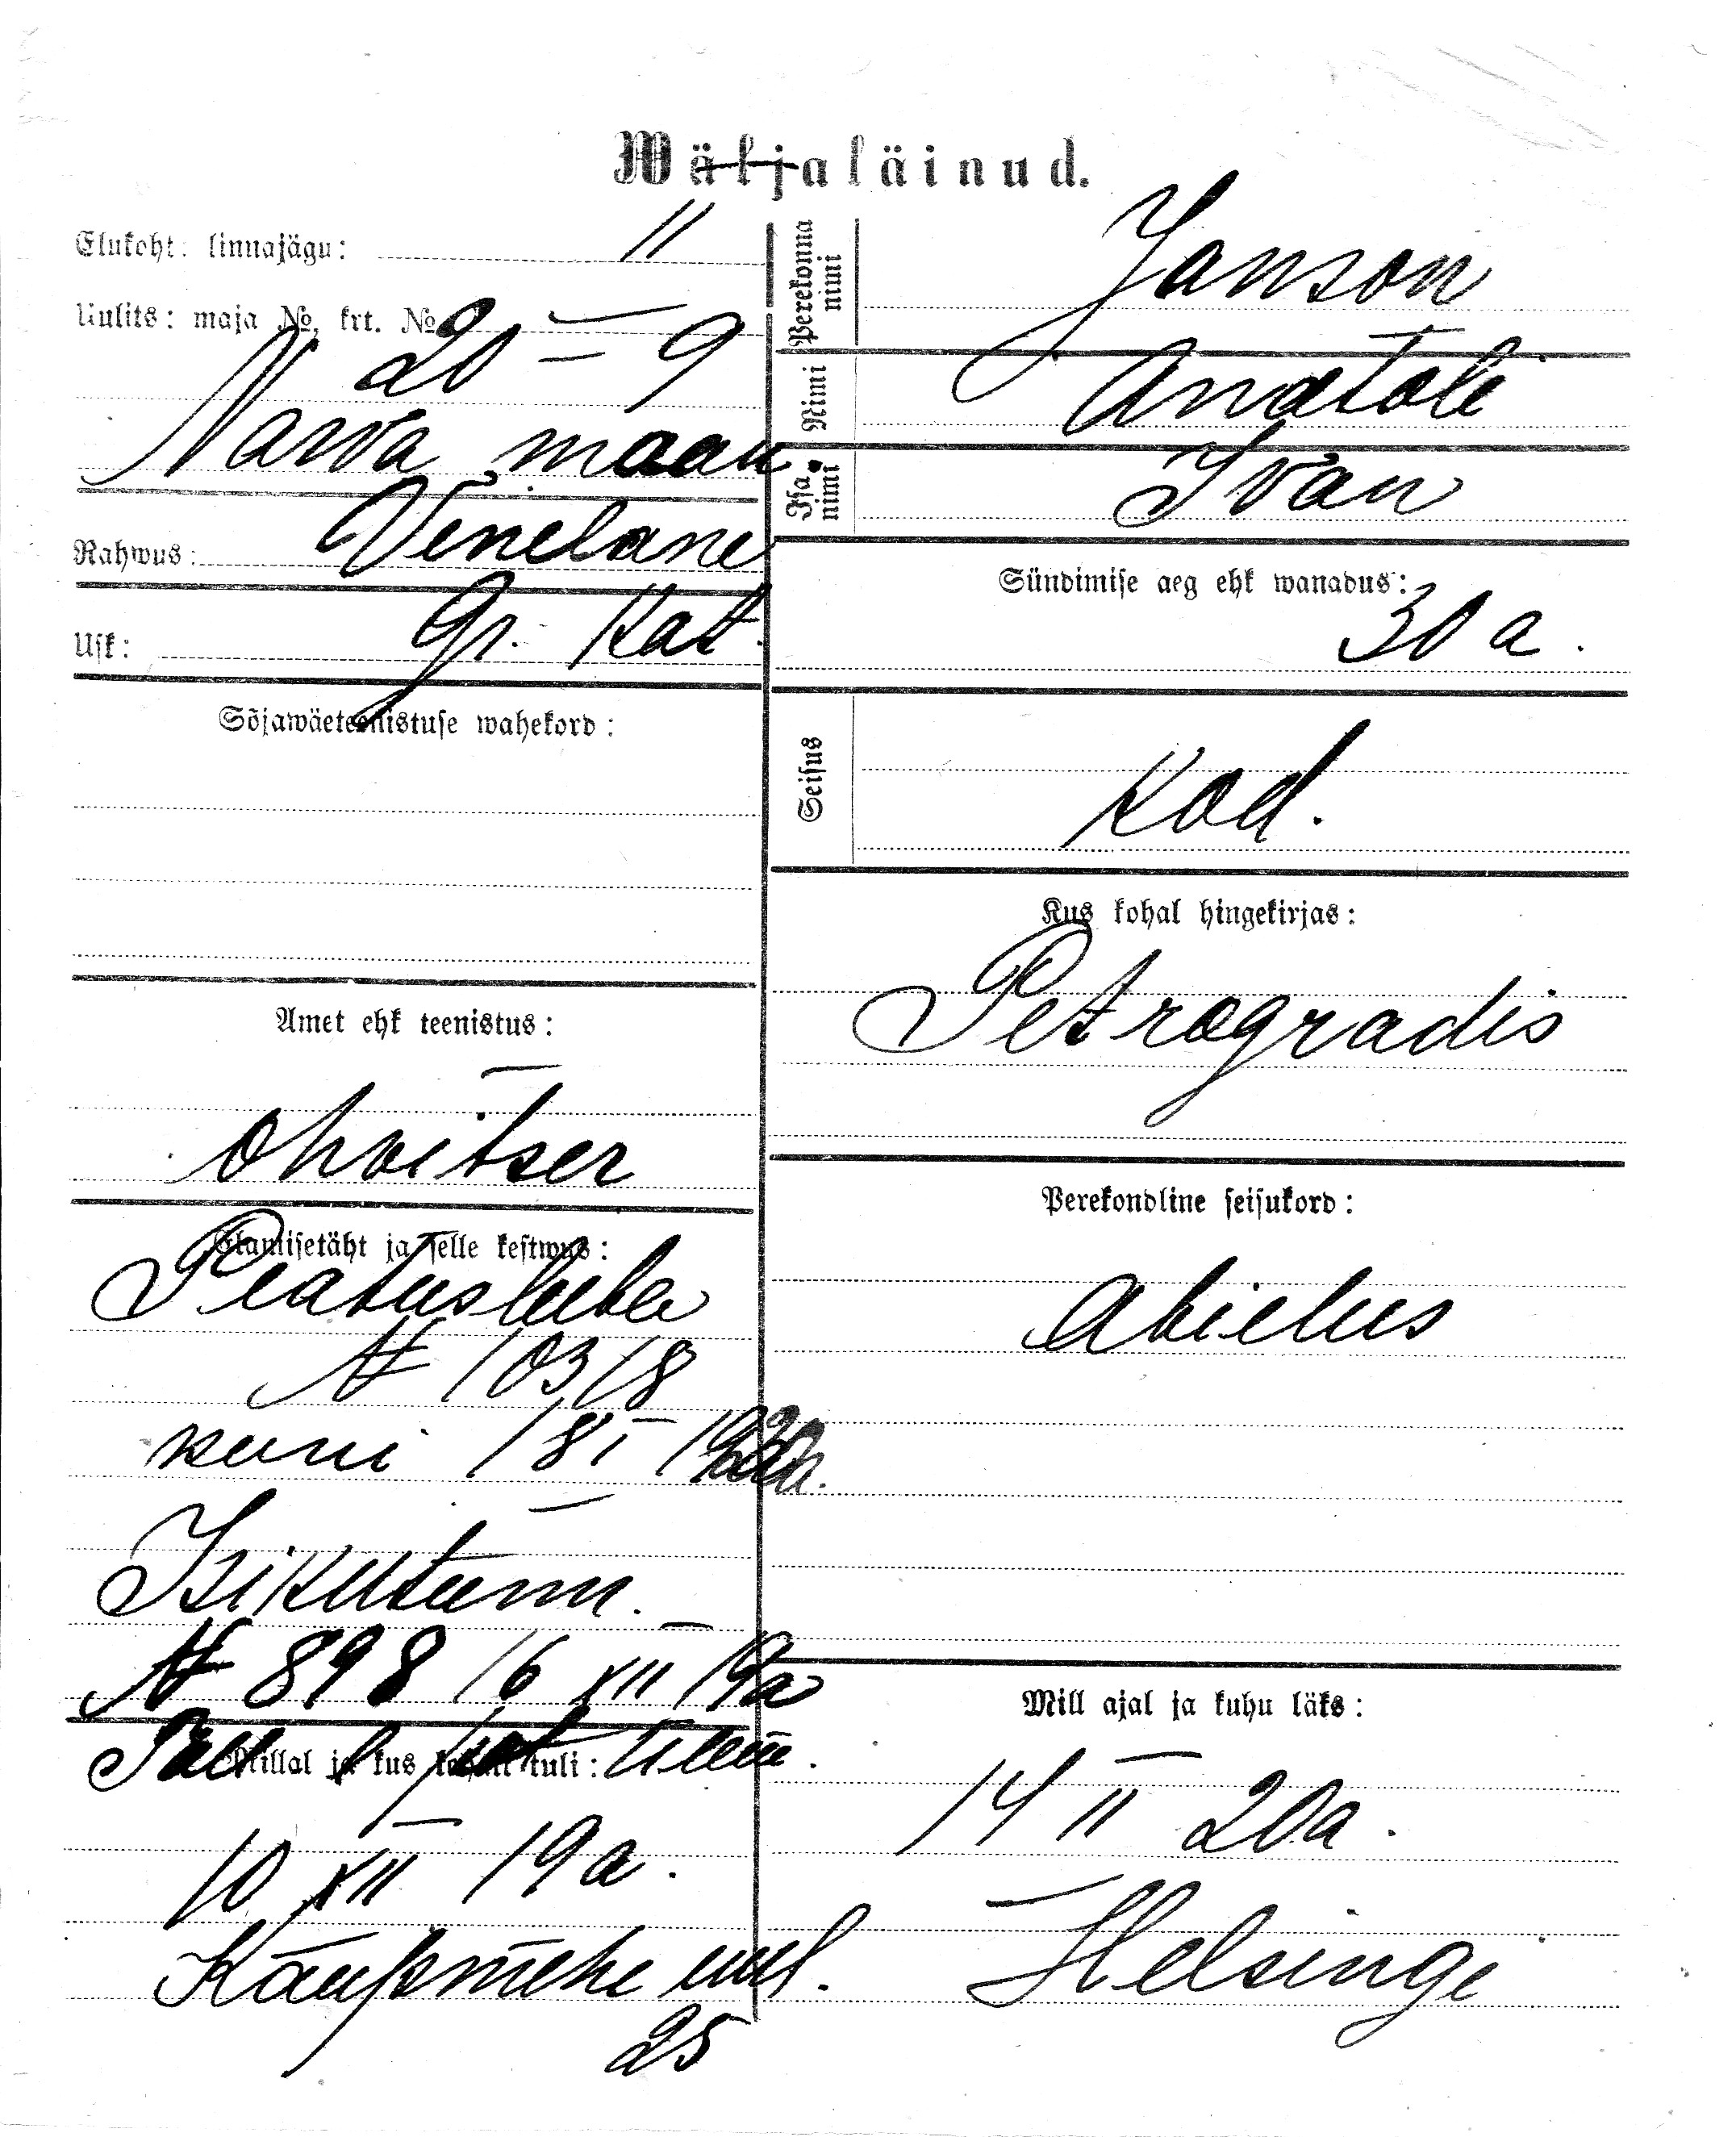 Wäljaläinud.
Elukoht: linnajägu: II
Uulits: maja No, krt. No
20 – 9
Narva maan
Rahwus: Venelane
Usk: Gr. Kat.
Sõjawäeteenistuse wahekord:
Amet ehk teenistus:
Ohvitser
Elamisetäht ja selle kestwus:
Peatusluba
№ 10318
kuni 18 I 1920a.
Isikutunn.
№ 898 16 XII 19a
Millal ja kus kohalt tuli:
10 XII 19a.
Kaupmehe uul.
25
Perekonna nimi
Janson
Nimi
Anatoli
Isa nimi
Ivan
Sündimise aeg ehk wanadus:
30 a.
Seisus
Kod.
Kus kohal hingekirjas:
Petrogradis
Perekondline seisukord:
Abielus
Mill ajal ja kuhu läks:
14 II 20a.
Helsingi